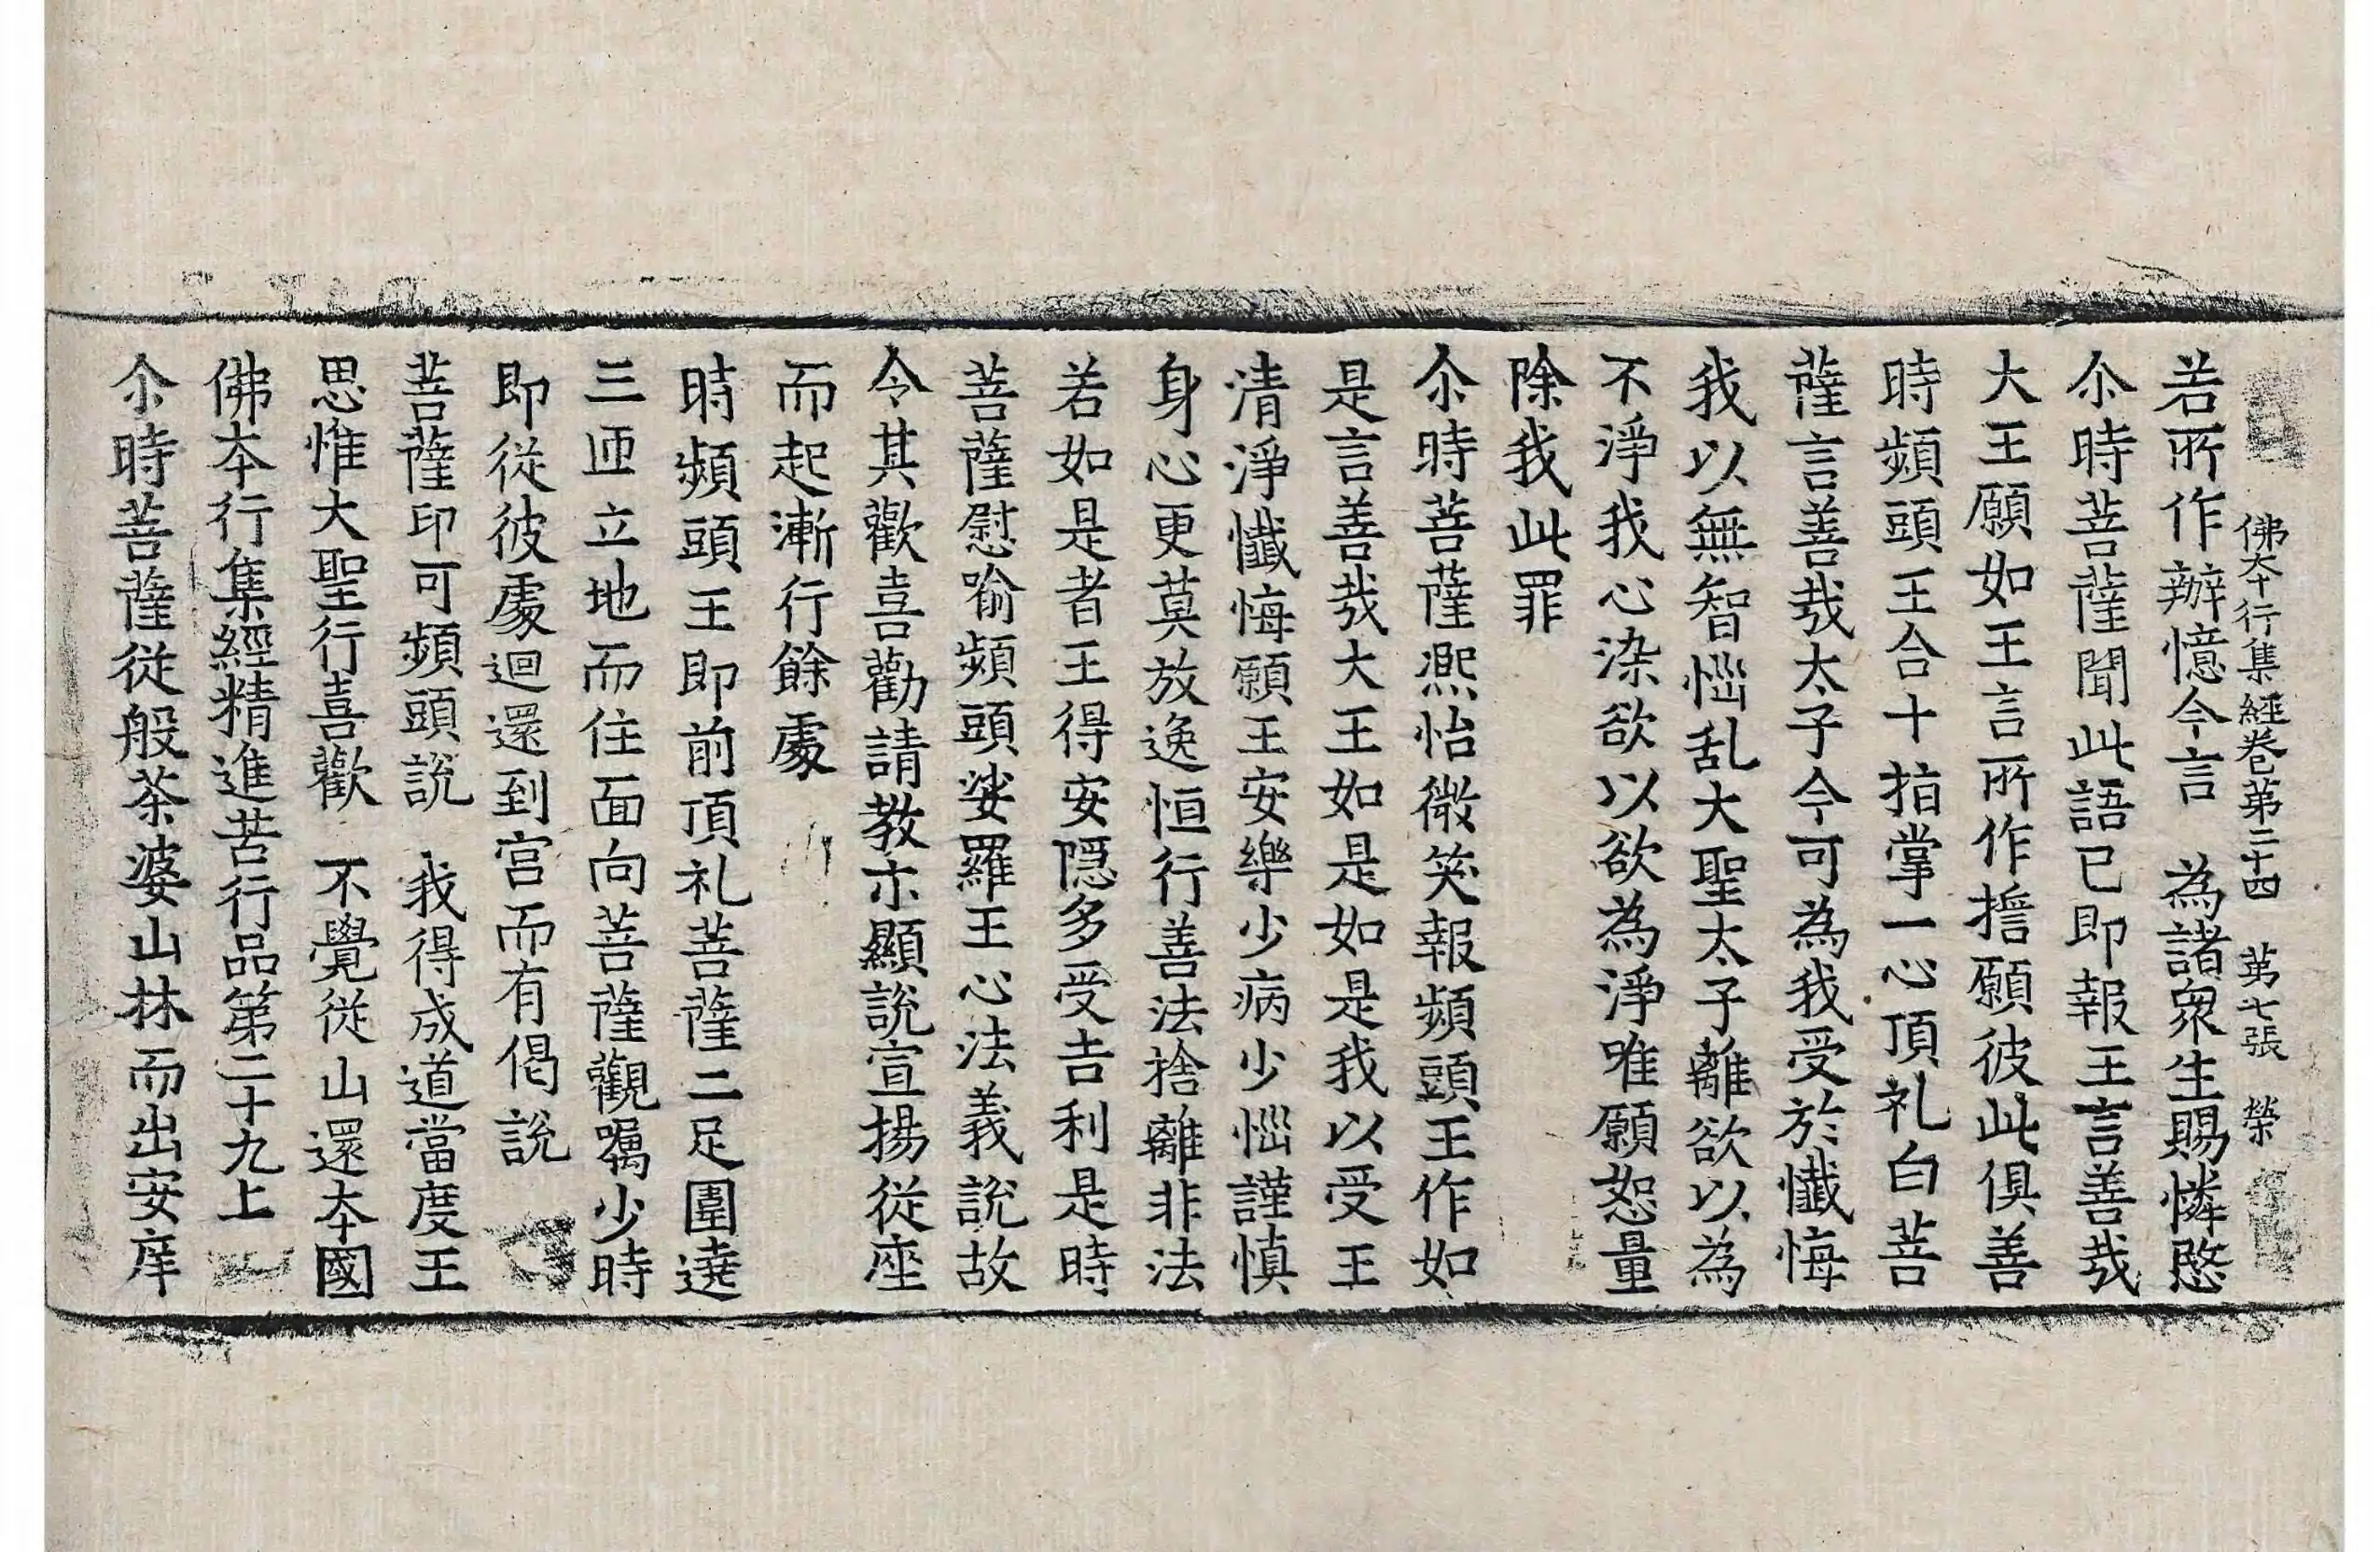 佛本行集經卷第二十四　第七張　榮
若所作辦憶今言　為諸眾生賜憐愍
尒時菩薩聞此語已即報王言善㢤
大王願如王言所作擔願彼此俱善
時頻頭王合十指掌一心頂礼白菩
薩言善㢤太子今可為我受於懺悔
我以無智惱乱大聖太子離欲以為
不淨我心染欲以欲為淨唯願恕量
除我此罪
尒時菩薩熈怡微笑報頻頭王作如
是言善㢤大王如是如是我以受王
清淨懺悔願王安樂少病少惱謹慎
身心更莫放逸恒行善法捨離非法
若如是者王得安隱多受吉利是時
菩薩慰喻頻頭娑羅王心法義說故
令其歡喜勸請教示顯說宣揚從座
而起漸行餘處
時頻頭王即前頂礼菩薩二足圍遶
三匝立地而住面向菩薩觀囑少時
即從彼處迴還到宮而有偈說
菩薩印可頻頭說　我得成道當度王
思惟大聖行喜歡　不覺從山還本國
佛本行集經精進苦行品第二十九上
尒時菩薩從般茶婆山林而出安庠